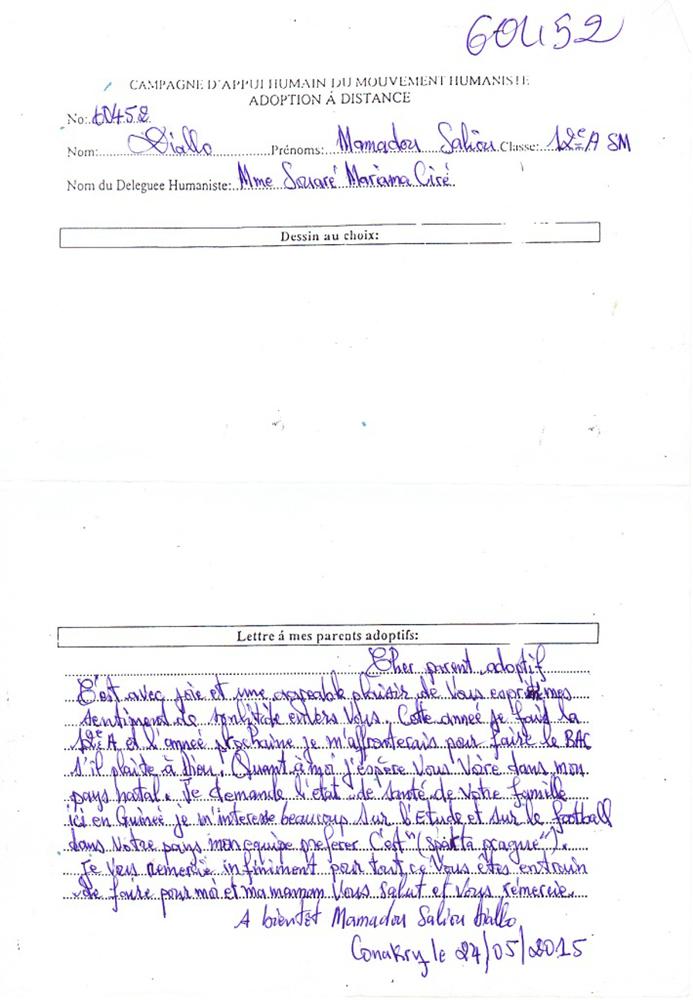 60452
CAMPAGNE D'APPUI HUMAIN DU MOUVEMENT HUMANISTE
ADOPTION À DISTANCE
No: 60452
Nom: Diallo Prénoms: Mamadou Saliou Classe: 12e A SM
Nom du Deleguee Humaniste: Mme Souaré Mariama Ciré
Dessin au choix:
Lettre á mes parents adoptifs:
Cher parent adoptif
C'est avec joie et une agreable plaisir de Vous exprimes
sentiment de envers Vous. Cette anneé je fais la
12e A et l'anneé prochaine je m'affronterais pour faire le BAC
s'il plaite à Dieu. Quant à moi j'espère Vous Voire dans mon
pays natal. Je demande l'état de santé de Votre famille
ici en Guineé je m'interesse beaucoup sur l'Etude et sur le football
dans Notre pays mon equipe preferer C'est "(sparta prague").
Je Vous remercie infiniment pour tout ce Vous êtes entrain
de faire pour moi et ma maman Vous Salut et Vous remercie.
A bientôt Mamadou Saliou Diallo
Conakry le 24/05/2015